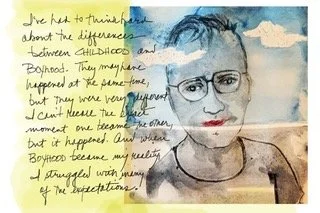 I've had to think hard
about the differences
between CHILDHOOD and
BOYHOOD. They may have
happened at the same time,
but they were very different
I can't recall the exact
moment one became the other,
but it happened. And when
BOYHOOD became my reality
I struggled with many
of the expectations.